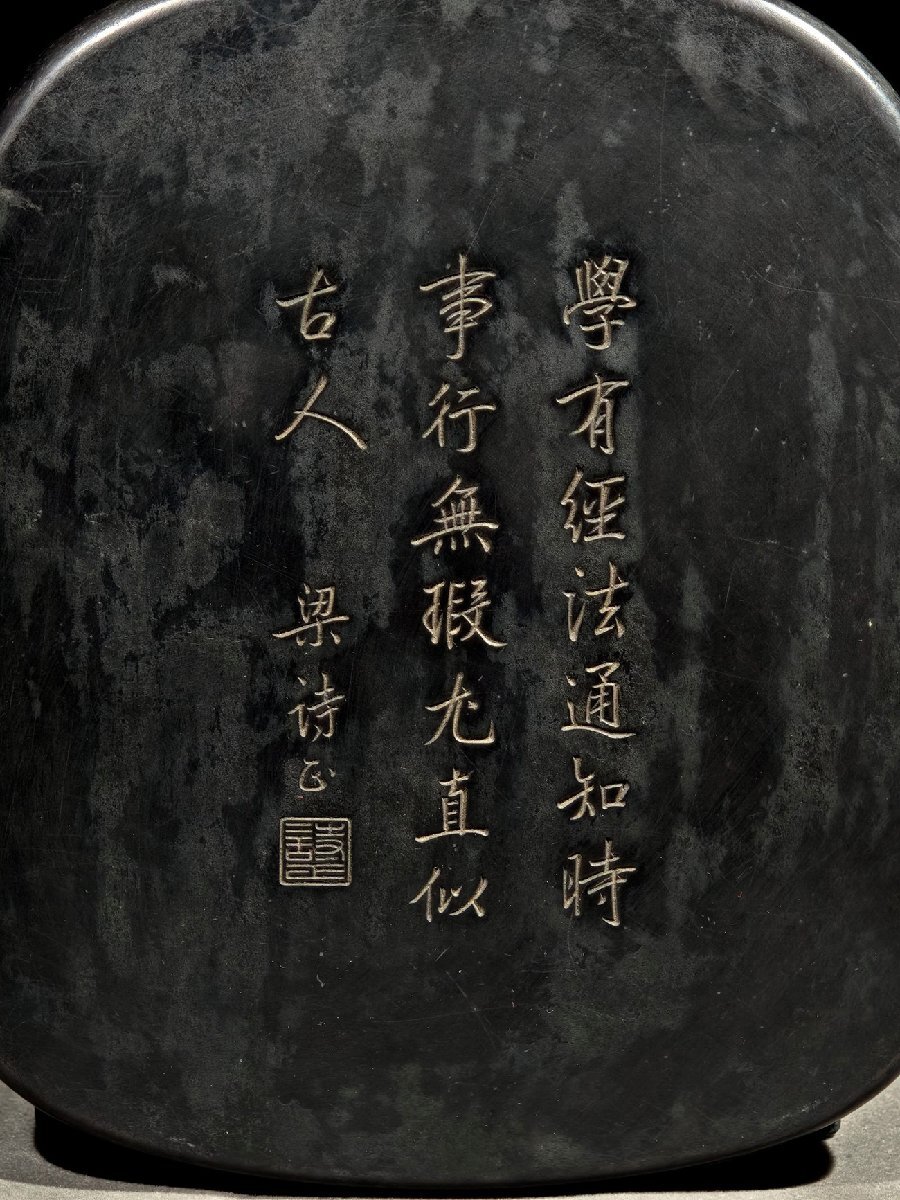 學有經法通知時
事行無瑕尤直似
古人 梁詩正
詩正